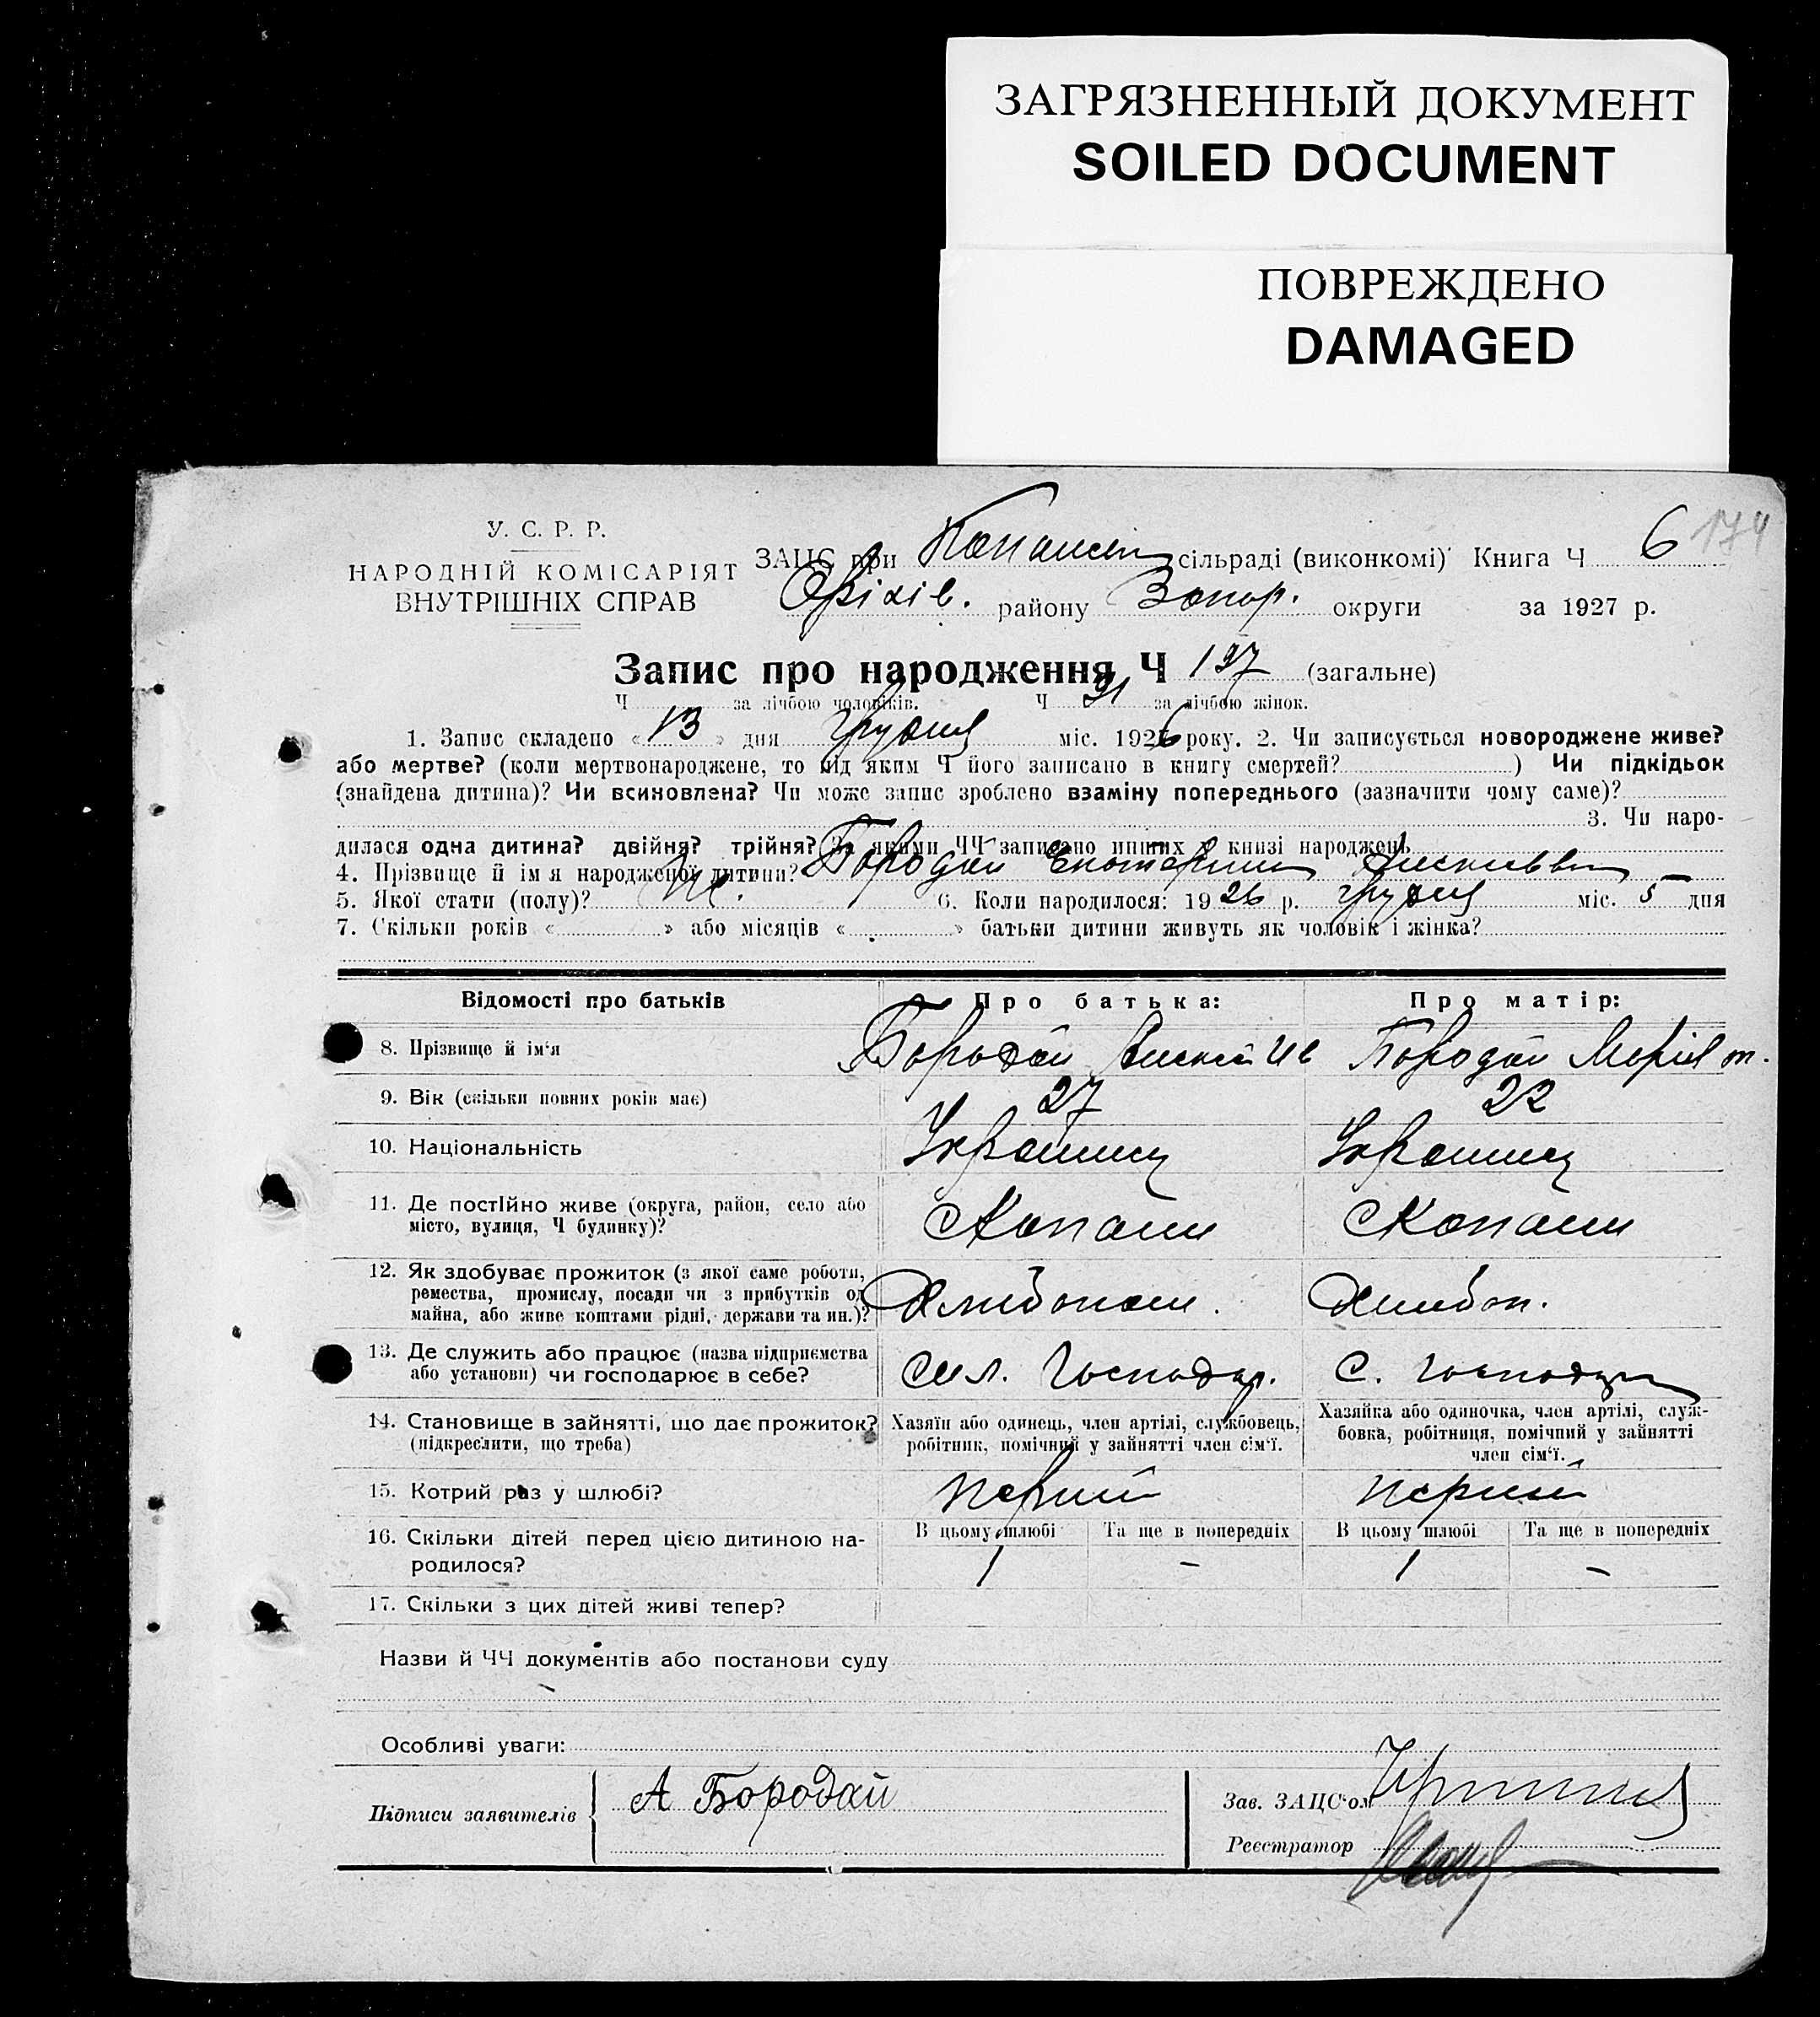 ЗАГРЯЗНЕННЫЙ ДОКУМЕНТ
SOILED DOCUMENT
ПОВРЕЖДЕНО
DAMAGED
У. С. Р. Р.
НАРОДНІЙ КОМІСАРІЯТ
ВНУТРІШНІХ СПРАВ
ЗАЦС при сільраді (виконкомі) Книга Ч 6 174
Оріхів. району Запор. округи за 1927 р.
Запис про народження Ч 197 (загальне)
Ч за лічбою чоловіків. Ч 91 за лічбою жінок.
1. Запис складено « 13 » дня грудня міс. 1926 року. 2. Чи записується новороджене живе?
або мертве? (коли мертвонароджене, то під яким Ч його записано в книгу смертей? ) Чи підкідьок
(знайдена дитина)? Чи всиновлена? Чи може запис зроблено взаміну попереднього (зазначити чому саме)?
3. Чи наро-
дилася одна дитина? двійня? трійня? За якими ЧЧ записано инших у книзі народжень
4. Прізвище й ім'я народженої дитини? Бородай
5. Якої стати (полу)? Ж. 6. Коли народилося: 1926 р. грудня міс. 5 дня
7. Скільки років « » або місяців « » батьки дитини живуть як чоловік і жінка?
Відомості про батьків Про батька: Про матір:
8. Прізвище й ім'я Бородай Бородай Марія
9. Вік (скільки повних років має) 27 22
10. Національність
11. Де постійно живе (округа, район, село або
місто, вулиця, Ч будинку)? С Копани С Копани
12. Як здобуває прожиток (з якої саме роботи,
ремества, промислу, посади чи з прибутків од
майна, або живе коштами рідні, держави та ин.)? Хлибопаш. Хлибоп.
13. Де служить або працює (назва підприємства
або установи) чи господарює в себе? сил. Господар. С.
14. Становище в зайнятті, що дає прожиток?
(підкреслити, що треба)
Хазяїн або одинець, член артілі, службовець,
робітник, помічний у зайнятті член сім'ї.
Хазяйка або одиночка, член артілі, служ-
бовка, робітниця, помічний у зайнятті
член сім'ї.
15. Котрий раз у шлюбі? перший перший
16. Скільки дітей перед цією дитиною на-
родилося?
В цьому шлюбі Та ще в попередніх В цьому шлюбі Та ще в попередніх
1 - 1 -
17. Скільки з цих дітей живі тепер?
Назви й ЧЧ документів або постанови суду
Особливі уваги:
Підписи заявителів А Бородай
Зав. ЗАЦС'ом
Реєстратор